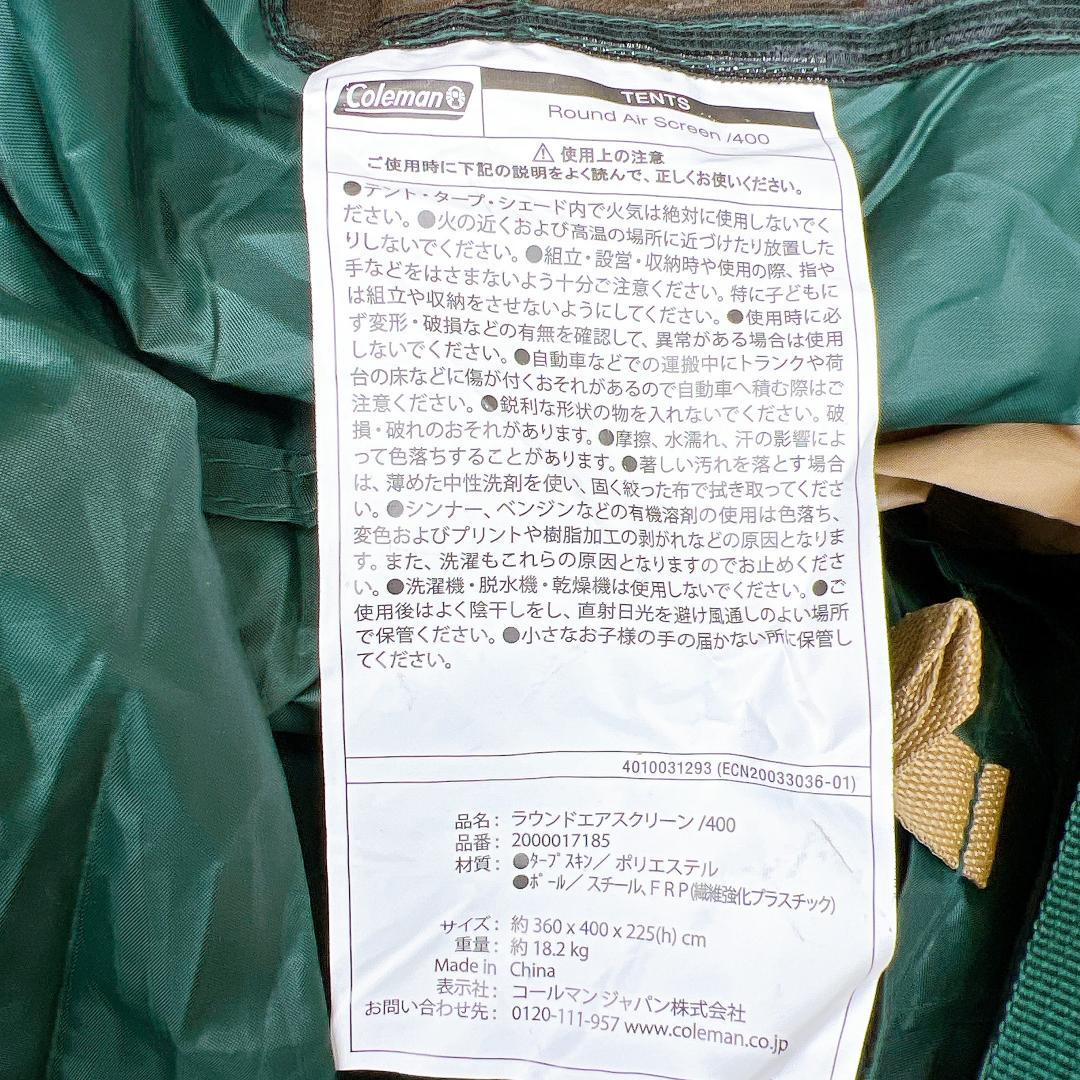 Coleman
TENTS
Round Air Screen /400
⚠ 使用上の注意
ご使用時に下記の説明をよく読んで、正しくお使いください。
●テント・タープ・シェード内で火気は絶対に使用しないでく
ださい。●火の近くおよび高温の場所に近づけたり放置した
りしないでください。●組立・設営・収納時や使用の際、指や
手などをはさまないよう十分ご注意ください。特に子どもに
は組立や収納をさせないようにしてください。●使用時に必
ず変形・破損などの有無を確認して、異常がある場合は使用
しないでください。●自動車などでの運搬中にトランクや荷
台の床などに傷が付くおそれがあるので自動車へ積む際はご
注意ください。●鋭利な形状の物を入れないでください。破
損・破れのおそれがあります。●摩擦、水濡れ、汗の影響によ
って色落ちすることがあります。●著しい汚れを落とす場合
は、薄めた中性洗剤を使い、固く絞った布で拭き取ってくださ
い。●シンナー、ベンジンなどの有機溶剤の使用は色落ち、
変色およびプリントや樹脂加工の剥がれなどの原因となりま
す。また、洗濯もこれらの原因となりますのでお止めくださ
い。●洗濯機・脱水機・乾燥機は使用しないでください。●ご
使用後はよく陰干しをし、直射日光を避け風通しのよい場所
で保管ください。●小さなお子様の手の届かない所に保管し
てください。
4010031293 (ECN20033036-01)
品名: ラウンドエアスクリーン /400
品番: 2000017185
材質: ●ﾀｰﾌﾟｽｷﾝ／ ポリエステル
●ﾎﾟｰﾙ／ スチール、FRP(繊維強化プラスチック)
サイズ: 約 360 x 400 x 225(h) cm
重量: 約 18.2 kg
Made in China
表示社: コールマン ジャパン株式会社
お問い合わせ先: 0120-111-957 www.coleman.co.jp